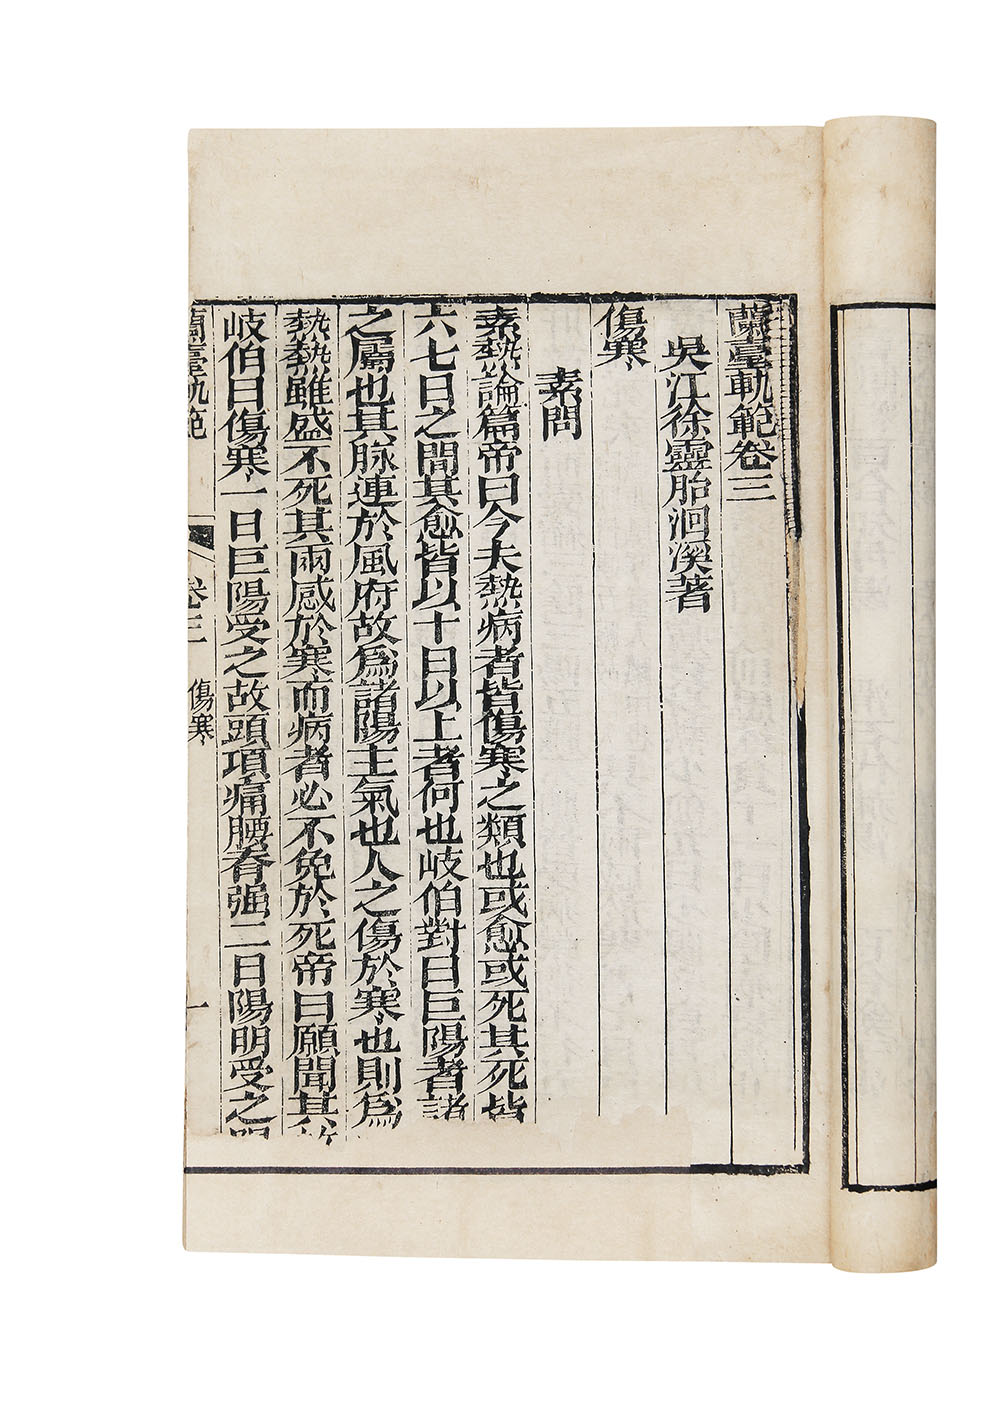 蘭臺軌範卷三
吳江徐靈胎洄溪著
傷寒
素問
素熱論篇帝曰今夫熱病者皆傷寒之類也或愈或死其死皆
六七日之間其愈皆以十日以上者何也岐伯對曰巨陽者諸
之屬也其脉連於風府故爲諸陽主氣也人之傷於寒也則爲
熱熱雖盛不死其兩感於寒而病者必不免於死帝曰願聞其
岐伯曰傷寒一日巨陽受之故頭項痛腰脊强二日陽明受之
蘭臺軌範 卷三 傷寒 一